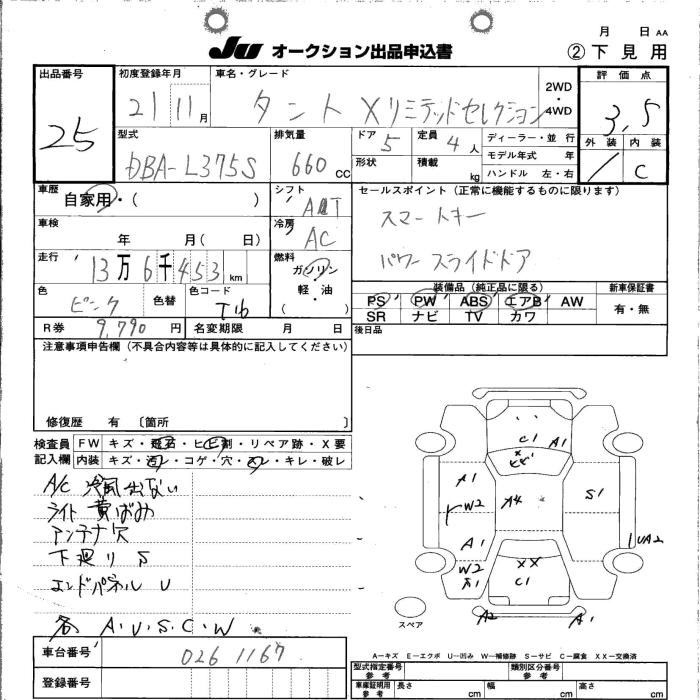 月 日 AA
JU オークション出品申込書 ②下見用
出品番号 初度登録年月 車名・グレード 評価点
25 21 11月 タント Xリミテッドセレクション 2WD・4WD 3.5
外装 内装
C
型式 排気量 ドア 5 定員 4人 ディーラー・並行
DBA-L375S 660cc 形状 積載 kg モデル年式 年
ハンドル 左・右
車歴 自家用・( ) シフト AT セールスポイント (正常に機能するものに限ります)
車検 年 月( 日) 冷房 AC スマートキー
走行 13万6千453km 燃料 ガソリン 軽・油 ( ) パワースライドドア
色 ピンク 色替 色コード T16 装備品 (純正品に限る) 新車保証書
PS PW ABS エアB AW 有・無
SR ナビ TV カワ
R券 9,790円 名変期限 月 日 後日品
注意事項申告欄 (不具合内容等は具体的に記入してください)
修復歴 有 〔箇所 〕
検査員 FW キズ・飛石・ヒビ割・リペア跡・X要
記入欄 内装 キズ・汚レ・コゲ・穴・スレ・キレ・破レ
A/C 冷風出ない
ライト黄ばみ
アンテナ穴
下廻り S
エンドパネル U
各 A.U.S.C.W
C1 A1
A1 S1
W2 A4
A1 UA2
W2 XX
A1 C1
A2 A1
スペア
車台番号 0261167
登録番号
A-キズ E-エクボ U-凹み W-補修跡 S-サビ C-腐食 XX-交換済
型式指定番号 参考 類別区分番号 参考
車庫証明用 参考 長さ cm 幅 cm 高さ cm